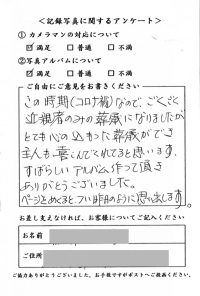 ＜記録写真に関するアンケート＞
① カメラマンの対応について
☑ 満足 □ 普通 □ 不満
②写真アルバムについて
☑ 満足 □ 普通 □ 不満
ご自由にご意見をお書きください
この時期(コロナ禍)なので、ごくごく
近親者のみの葬儀になりましたが
とても心の込もった葬儀ができ
主人も喜んでくれてると思います。
すばらしいアルバム作って頂き
ありがとうございました。
ページをめくるとつい昨日のように思い出します。
お差し支えなければ、お客様についてご記入ください
お名前
ご住所
ご協力ありがとうございました。お手数ですがポストへご投函ください。